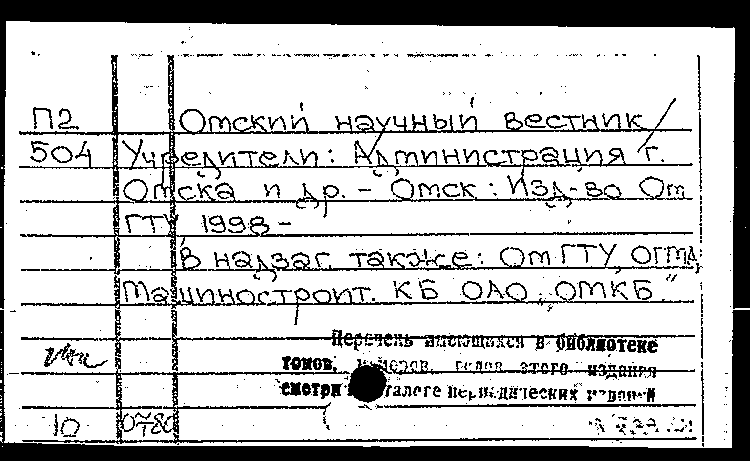 П2 Омский научный вестник /
504 Учредители: Администрация г.
Омска и др. - Омск: Изд-во Ом
ГТУ 1998 -
В надзаг. также: ОмГТУ, ОГМА,
Машиностроит. КБ ОАО „ОМКБ."
Перечень имеющихся в библиотеке
томов, номеров, годов этого издания
смотри каталоге периодических изданий
10 0780